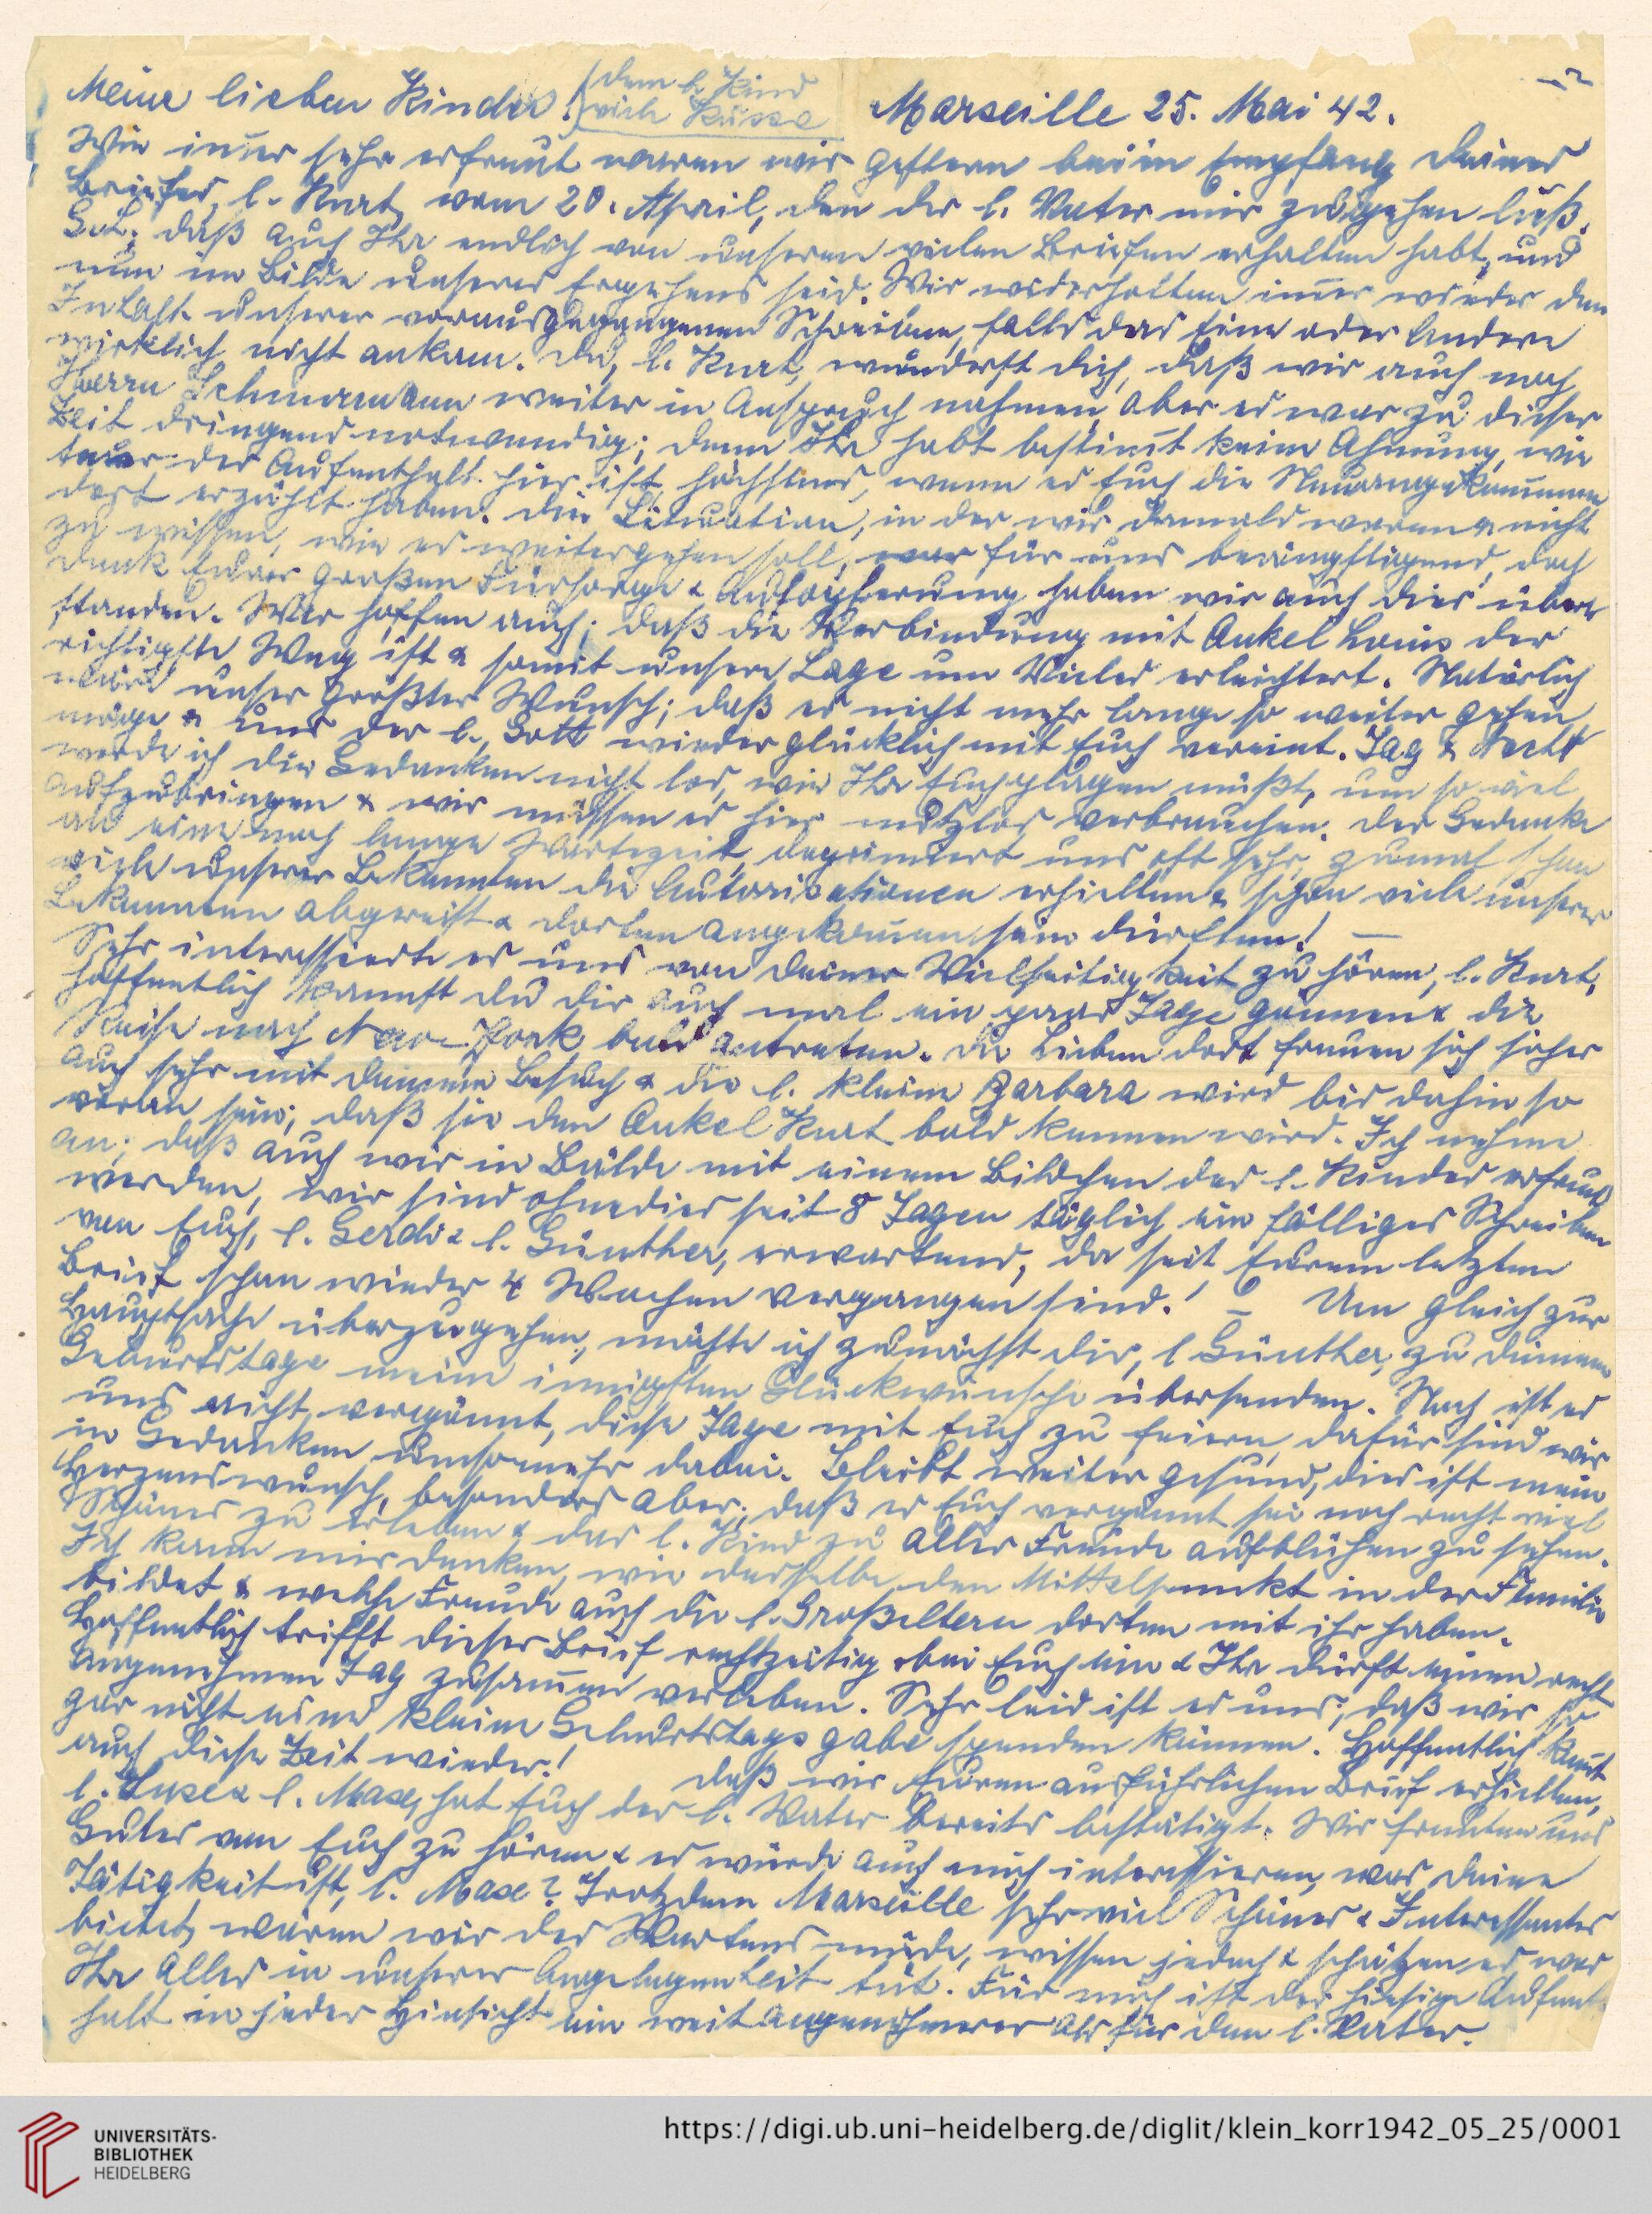 Meine lieben Kinder! (dem l. Kind
viele Küsse
Marseille 25. Mai 42.
Wie im̅er sehr erfreut waren wir gestern beim Empfang Deines
Briefes, l. Kurt, vom 20. April, den der l. Vater mir zugehen ließ.
G.L. daß auch Ihr endlich von unseren vielen Briefen erhalten habt, und
nun im Bilde unseres Ergehens seid. Wir widerholten im̅er wieder den
Inhalt unserer vorausgegangenen Schreiben, falls das Eine oder Andere
wirklich nicht ankam. Du, l. Kurt, wunderst Dich, daß wir auch noch
Herrn Schnurmann weiter in Anspruch nahmen, aber es war zu dieser
Zeit dringend notwendig; denn Ihr habt bestim̅t keine Ahnung, wie
teuer der Aufenthalt hier ist, höchstens, wenn es Euch die Neuangekom̅enen
dort erzählt haben. Die Situation, in der wir damals waren & nicht
zu wissen, wie es weitergehen soll, war für uns beängstigend, doch
dank Eurer großen Fürsorge & Aufopferung haben wir auch dies über-
standen. Wir hoffen auch; daß die Verbindung mit Onkel Louis der
richtigste Weg ist & somit unsere Lage um Vieles erleichtert. Natürlich
wäre unser größter Wunsch; daß es nicht mehr lange so weiter gehen
möge & uns der l. Gott wieder glücklich mit Euch vereint. Tag & Nacht
werde ich die Gedanken nicht los, wie Ihr Euch plagen müßt, um so viel
aufzubringen & wir müssen es hier nutzlos verbrauchen. Der Gedanke
an eine noch lange Wartezeit, deprimiert uns oft sehr, zumal schon
viele unserer Bekannten die Autorisationen erhielten & schon viele unserer
Bekannten abgereist & dorten angekom̅en sein dürften! —
Sehr interessierte es uns von Deiner Vielseitigkeit zu hören, l. Kurt,
hoffentlich kannst Du Dir auch mal ein paar Tage gönnen & die
Reise nach New-York bald antreten. Die Lieben dort freuen sich sicher
auch sehr mit Deinem Besuch & die l. kleine Barbara wird bis dahin so
voran sein; daß sie den Onkel Kurt bald kennen wird. Ich nehme
an; daß auch wir in Bälde mit einem Bildchen des l. Kindes erfreut
werden, wir sind ohnedies seit 8 Tagen täglich ein fälliges Schreiben
von Euch, l. Gerdi & l. Günther, erwartend, da seit Eurem letzten
Brief schon wieder 4 Wochen vergangen sind! — Um gleich zur
Hauptsache überzugehen, möchte ich zunächst Dir, l Günther, zu Deinem
Geburtstage meine innigsten Glückwünsche übersenden. Noch ist es
uns nicht vergönnt, diese Tage mit Euch zu feiern, dafür sind wir
in Gedanken umsomehr dabei. Bleibt weiter gesund, dies ist mein
Herzenswunsch, besonders aber; daß es Euch vergönnt sei noch recht viel
Schönes zu erleben & das l. Kind zu aller Freude aufblühen zu sehen.
Ich kann mir denken, wie dasselbe den Mittelpunkt in der Familie
bildet & welche Freude auch die l. Großeltern dorten mit ihr haben.
Hoffentlich trifft dieser Brief rechtzeitig bei Euch ein & Ihr dürft einen recht
angenehmen Tag zusam̅en verleben. Sehr leid ist es uns; daß wir so
gar nicht eine kleine Geburtstagsgabe spenden können. Hoffentlich kom̅t
auch diese Zeit wieder!
daß wir Euren ausführlichen Brief erhielten,
l. Luse & l. Max, hat Euch der l. Vater bereits bestätigt. Wir freuten uns
Gutes von Euch zu hören & es würde auch mich interessieren, was Deine
Tätigkeit ist, l. Max? Trotzdem Marseille sehr viel Schönes & Interessantes
bietet, wären wir des Wartens müde, wissen jedoch & schätzen es, was
Ihr Alles in unserer Angelegenheit tut. Für mich ist der hiesige Aufent-
halt in jeder Hinsicht ein weit angenehmerer als für den l. Vater.
UNIVERSITÄTS-
BIBLIOTHEK
HEIDELBERG
https://digi.ub.uni-heidelberg.de/diglit/klein_korr1942_05_25/0001